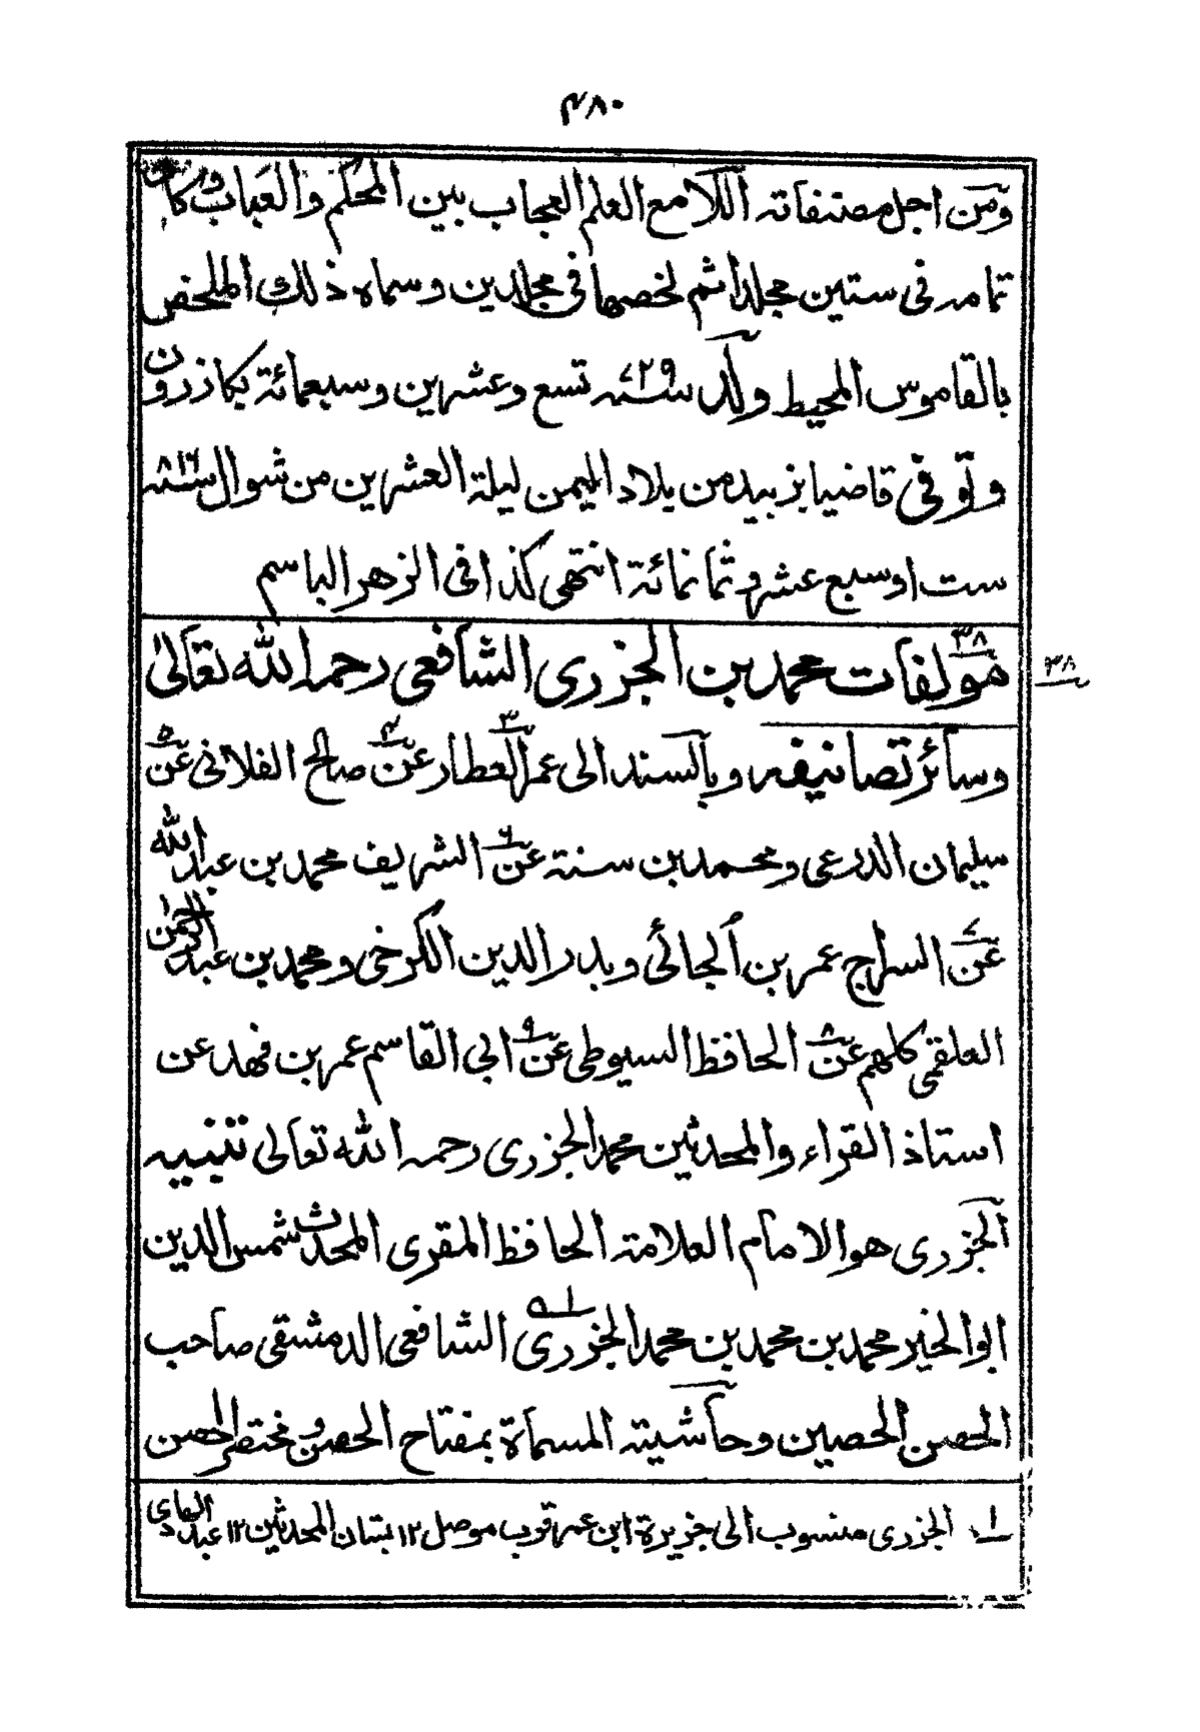 ۴۸۰
ومن اجل مصنفاته اللامع العلم العجاب بين المحكم والعباب وكان
تمامه فى ستين مجلدا ثم لخصها فى مجلدين وسماه ذلك الملخص
بالقاموس المحيط ولد سنة ٧٢٩ تسع وعشرين وسبعمائة بكازرون
وتوفى قاضيا بزبيد من بلاد اليمن ليلة العشرين من شوال سنة ٨١٦
ست او سبع عشر وثمانمائة انتهى كذا فى الزهر الباسم
٣٨ مؤلفات محمد بن الجزرى الشافعى رحمه الله تعالى
٣٨
وسائر تصانيفه وبالسند الى عمر العطار ٣ عن ۴ صالح الفلانى عن ٥
سليمان الدرعى ومحمد بن سنة عن ٦ الشريف محمد بن عبد الله
عن ٧ السراج عمر بن الجائى وبدر الدين الكرخى ومحمد بن عبد الرحمن
العلقمى كلهم عن ٨ الحافظ السيوطى عن ٩ ابى القاسم عمر بن فهد عن
استاذ القراء والمحدثين محمد الجزرى رحمه الله تعالى تنبيه
الجزرى هو الامام العلامة الحافظ المقرى المحدث شمس الدين
ابو الخير محمد بن محمد بن محمد الجزرى الشافعى الدمشقى صاحب
الحصن الحصين وحاشيته المسماة بمفتاح الحصن ومختصر الحصن
١ الجزرى منسوب الى جزيرة ابن عمر قرب موصل ١٢ بستان المحدثين ١٢ عبد الهادى